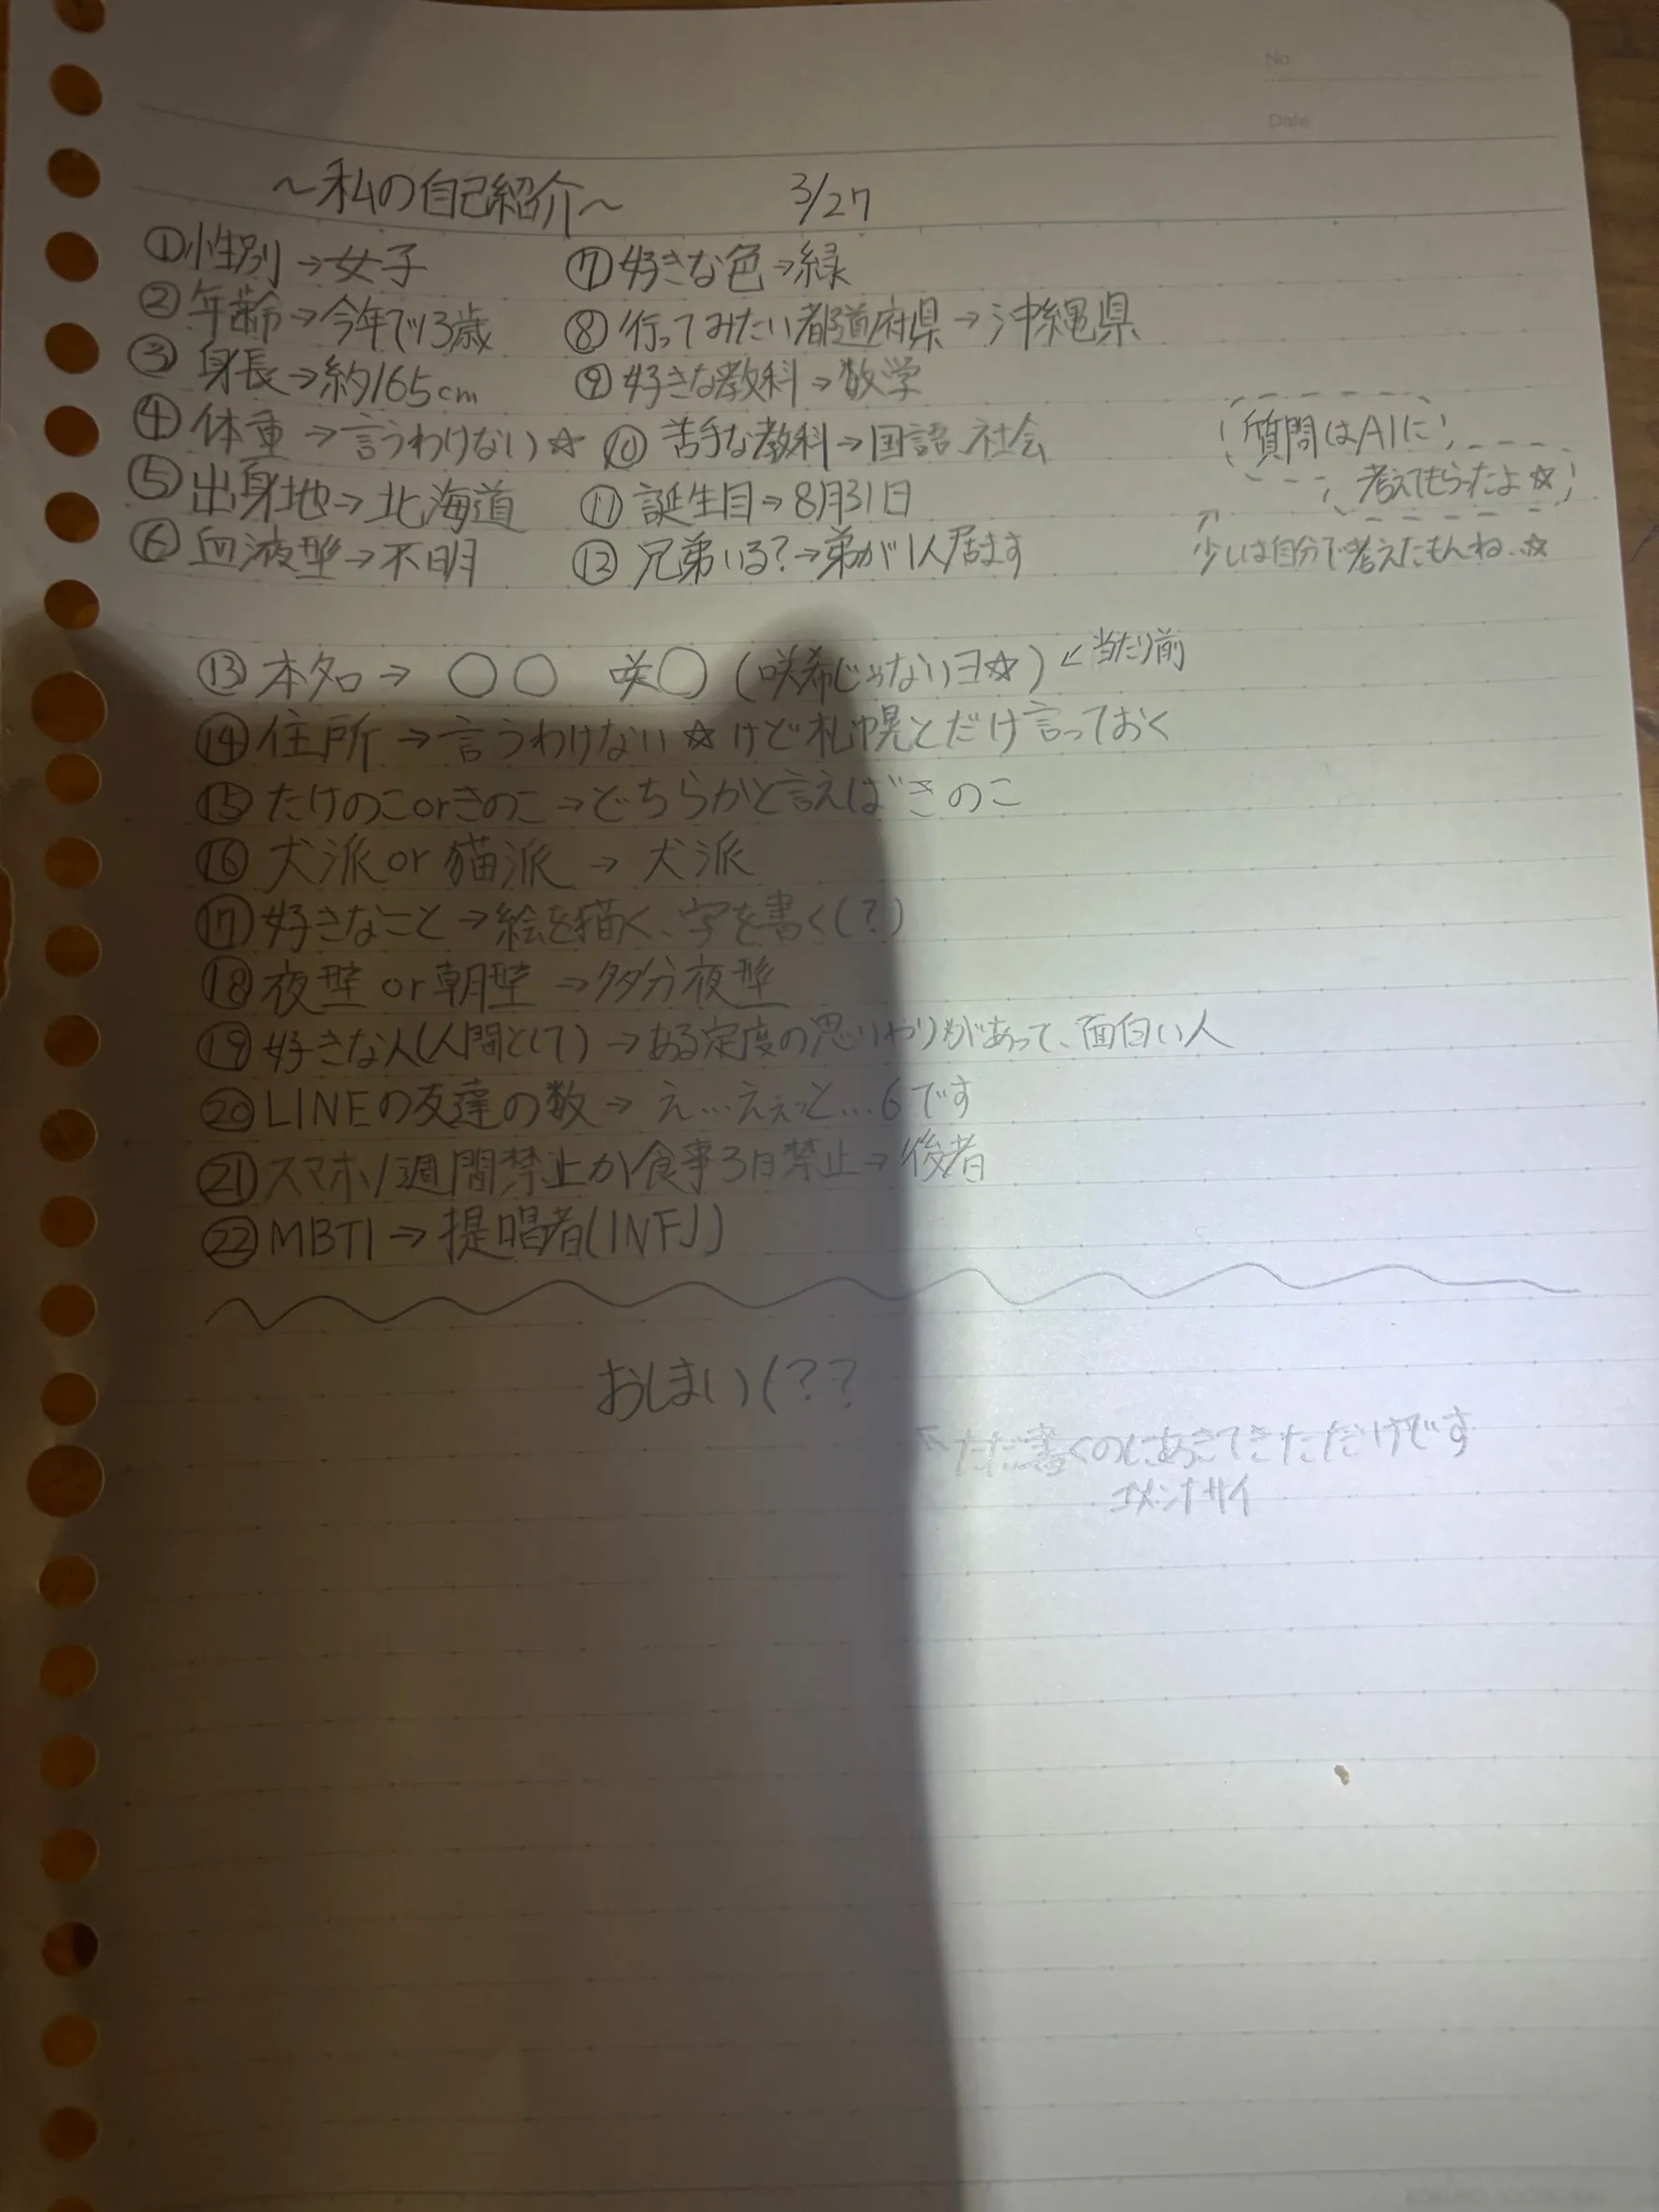 No
Date
～私の自己紹介～ 3/27
①性別→女子
②年齢→今年で13歳
③身長→約165cm
④体重→言うわけない☆
⑤出身地→北海道
⑥血液型→不明
⑦好きな色→緑
⑧行ってみたい都道府県→沖縄県
⑨好きな教科→数学
⑩苦手な教科→国語、社会
⑪誕生日→8月31日
⑫兄弟いる?→弟が1人居ます
質問はAIに
考えてもらったよ☆
↑
少しは自分で考えたもんね☆
⑬本名→〇〇 咲〇(咲希じゃないヨ☆)←当たり前
⑭住所→言うわけない☆けど札幌とだけ言っておく
⑮たけのこorきのこ→どちらかと言えばきのこ
⑯犬派or猫派→犬派
⑰好きなこと→絵を描く、字を書く(?)
⑱夜型or朝型→多分夜型
⑲好きな人(人間として)→ある定度の思いやりがあって、面白い人
⑳LINEの友達の数→え…えぇっと…6です
㉑スマホ1週間禁止か食事3日禁止→後者
㉒MBTI→提唱者(INFJ)
おしまい(??
↖ただ書くのにあきてきただけです
ゴメンナサイ